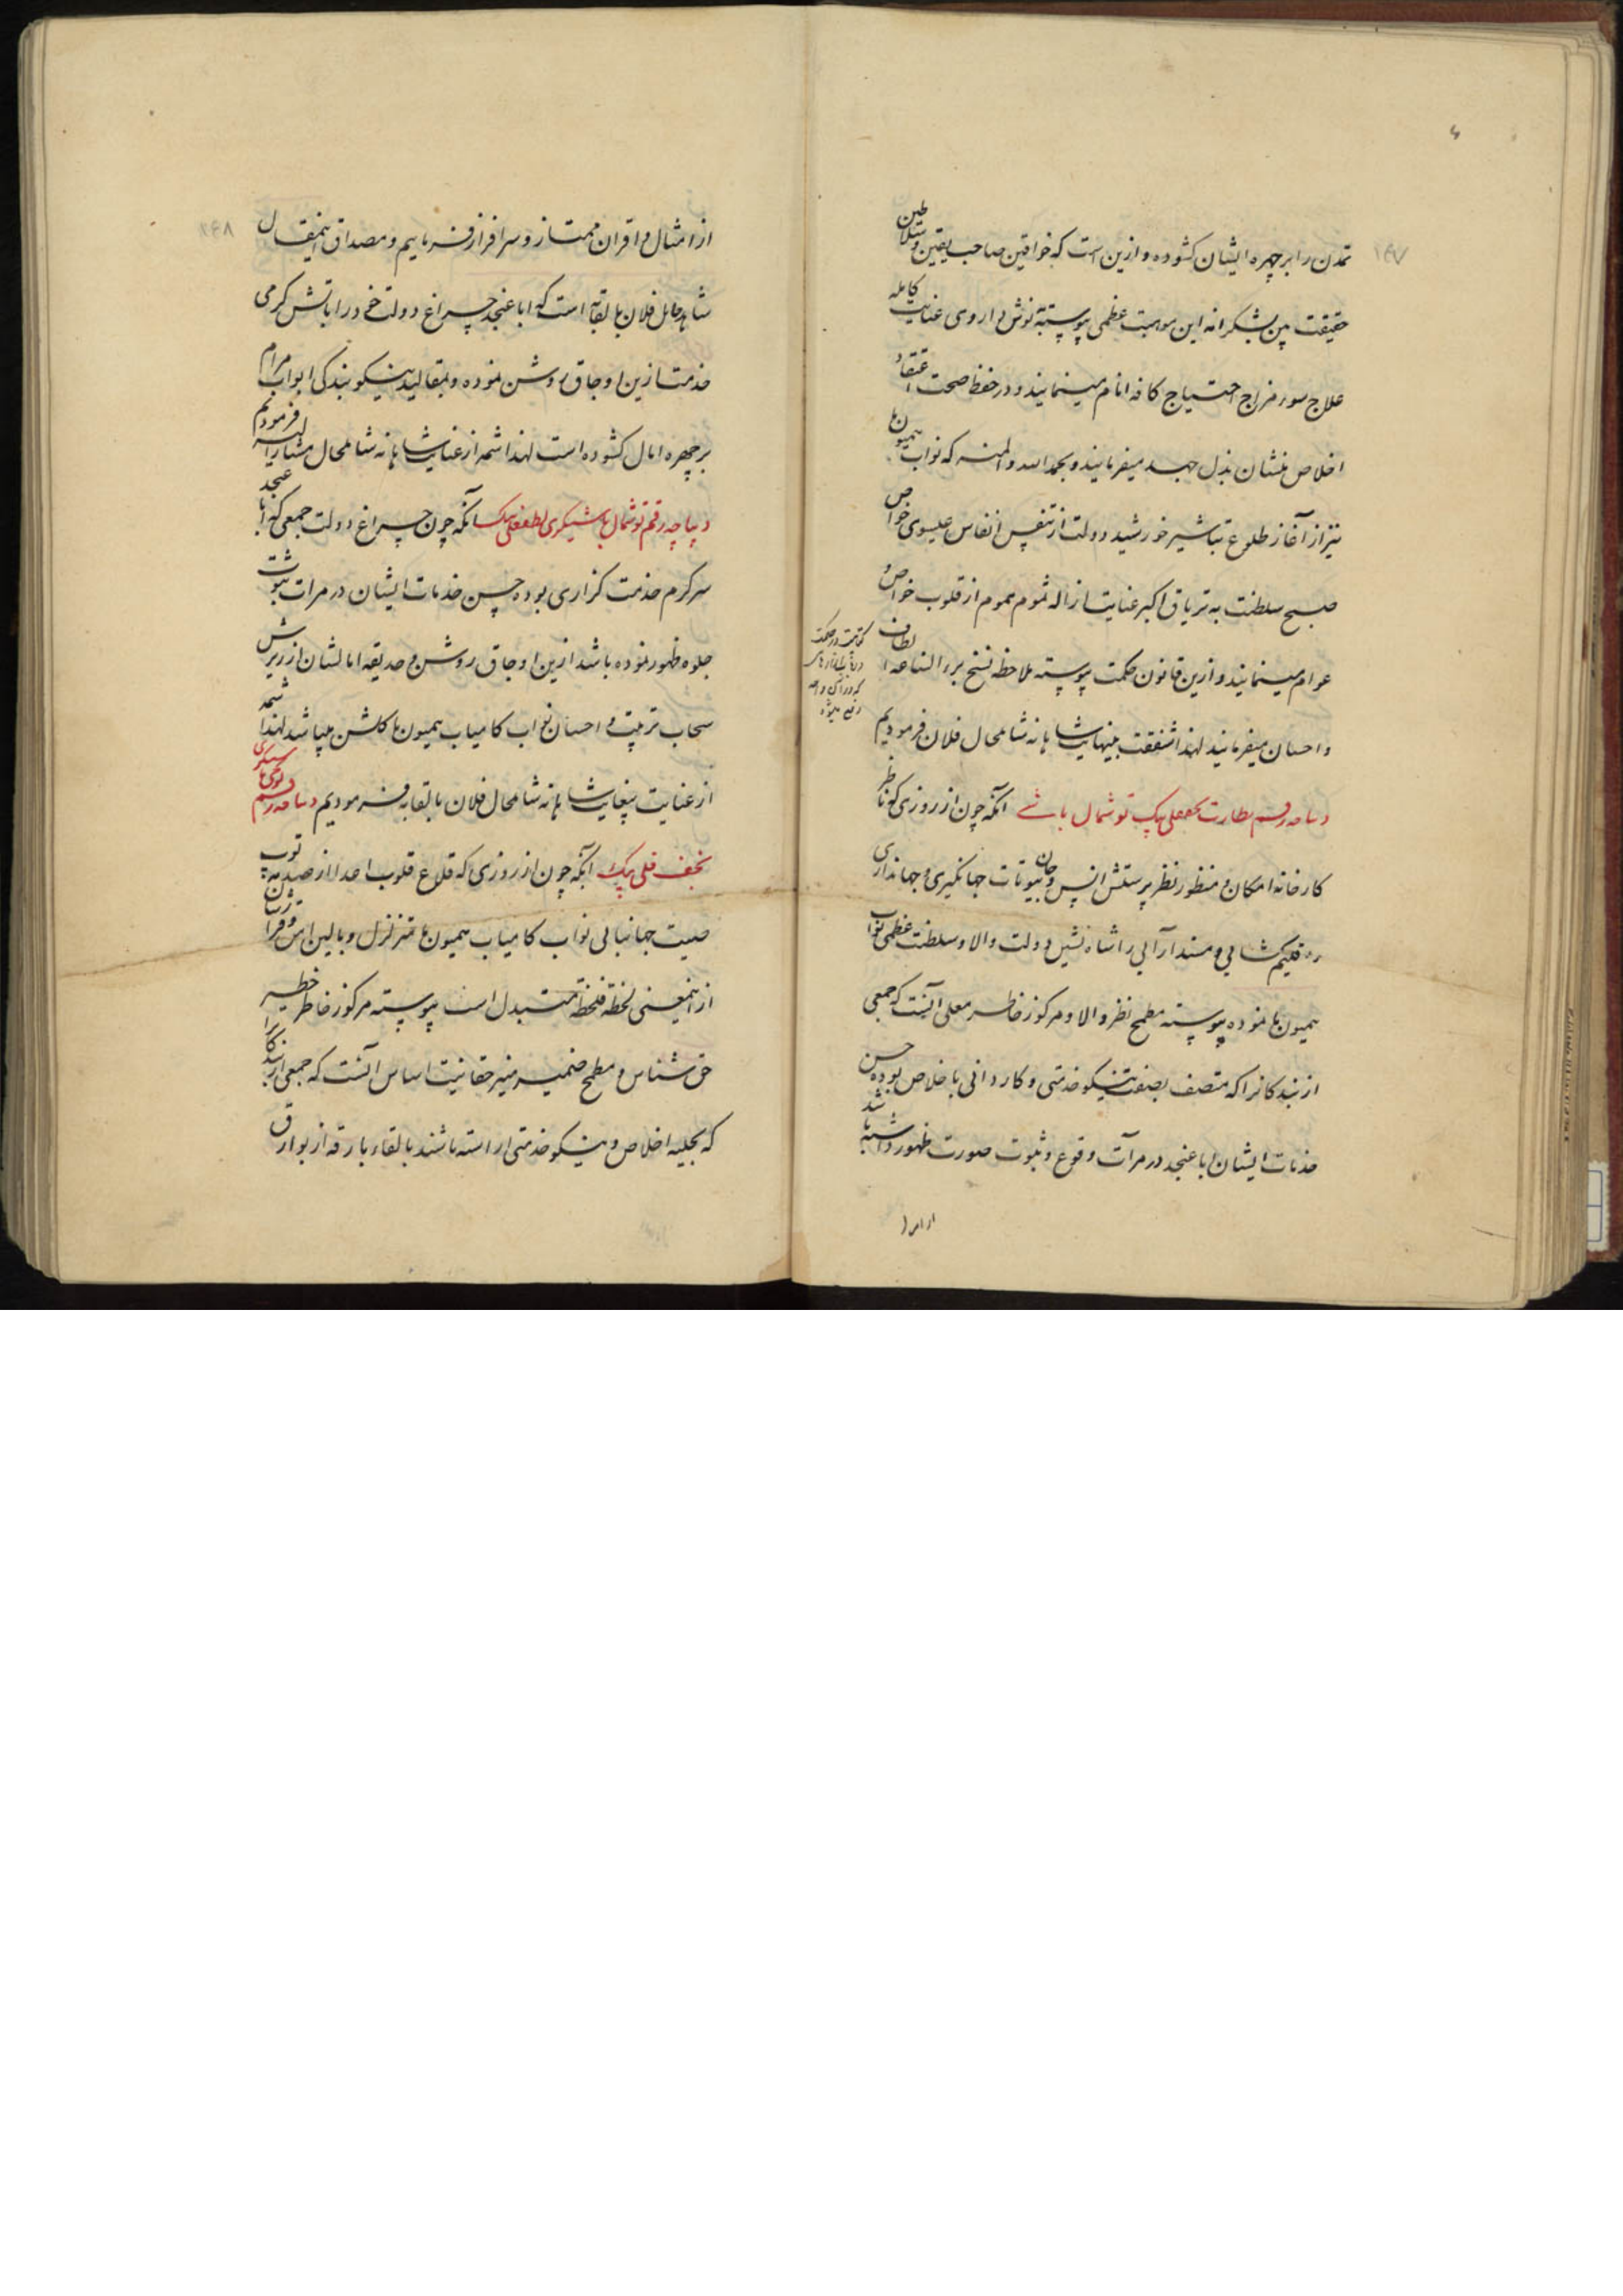 ۱۴۷
تمدن را بر چهره ایشان کشوده و ازین است که خواقین صاحب یقین و سلاطین
حقیقت بین بشکرانه این موهبت عظمی پیوسته بنوش داروی عنایت کامله
علاج سوء مزاج احتیاج کافه انام مینمایند و در حفظ صحت اعتقاد
اخلاص منشان بذل جهد میفرمایند و بحمد الله و المنه که نواب همیون ما
نیز از آغاز طلوع تباشیر خورشید دولت از تنفس انفاس عیسوی خواص
صبح سلطنت به تریاق اکبر عنایت ازاله سموم هموم از قلوب خواص و
عوام مینمایند و ازین قانون حکمت پیوسته ملاحظه نسخ برء الساعه الطاف
و احسان میفرمایند لهذا شفقت بینهایت شاهانه شامل حال فلان فرمودیم
دیباجه رقم نظارت نجفعلی بیک توشمال باشی آنکه چون از روزی که ناظر
کارخانه امکان و منظور نظر پرستش انس و جان بیوتات جهانگیری و جهانداری
و اقلیم کشائی و مسند آرائی را شاه نشین دولت والا و سلطنت عظمی نواب
همیون ما نموده پیوسته مطمح نظر والا و مرکوز خاطر معلی آنست که جمعی
از بندکانرا که متصف بصفت نیکو خدمتی و کاردانی با خلاص بوده حسن
خدمات ایشان اباعنجد در مرآت وقوع و ثبوت صورت ظهور داشته باشد
از امثا
۱۴۸
از امثال و اقران ممتاز و سرافراز فرماییم و مصداق اینمقال
شاهد حال فلان بالقابه است که اباعنجد چراغ دولت خود را باتش کرمی
خدمت ازین اوجاق روشن نموده و بمقالید نیکو بندکی ابواب مرام
بر چهره امال کشوده است لهذا شمه از عنایت شاهانه شامل حال مشار الیه فرمودیم
دیباچه رقم توشمال باشیکری لطفعلی بیک آنکه چون چراغ دولت جمعی که اباعنجد
سرکرم خدمت کزاری بوده حسن خدمات ایشان در مرات ثبوت
جلوه ظهور نموده باشد ازین اوجاق روشن و حدیقه امالشان از ریزش
سحاب تربیت و احسان نواب کامیاب همیون ما کلشن میباشد لهذا شمه
از عنایت بیغایت شاهانه شامل حال فلان بالقابه فرمودیم دیباجه رقم
نجف قلی بیک آنکه چون از روزی که قلاع قلوب اعدا از صدمه توپ
صیت جهانبانی نواب کامیاب همیون ما متزلزل و بالین
از اینمعنی لحظة فلحظة متبدل است پیوسته مرکوز خاطر خطیر
حق شناس و مطمح ضمیر منیر حقانیت اساس آنست که جمعی از بندکان را
که بحلیه اخلاص و نیکو خدمتی اراسته باشند بالقاء بارقه از بوارق